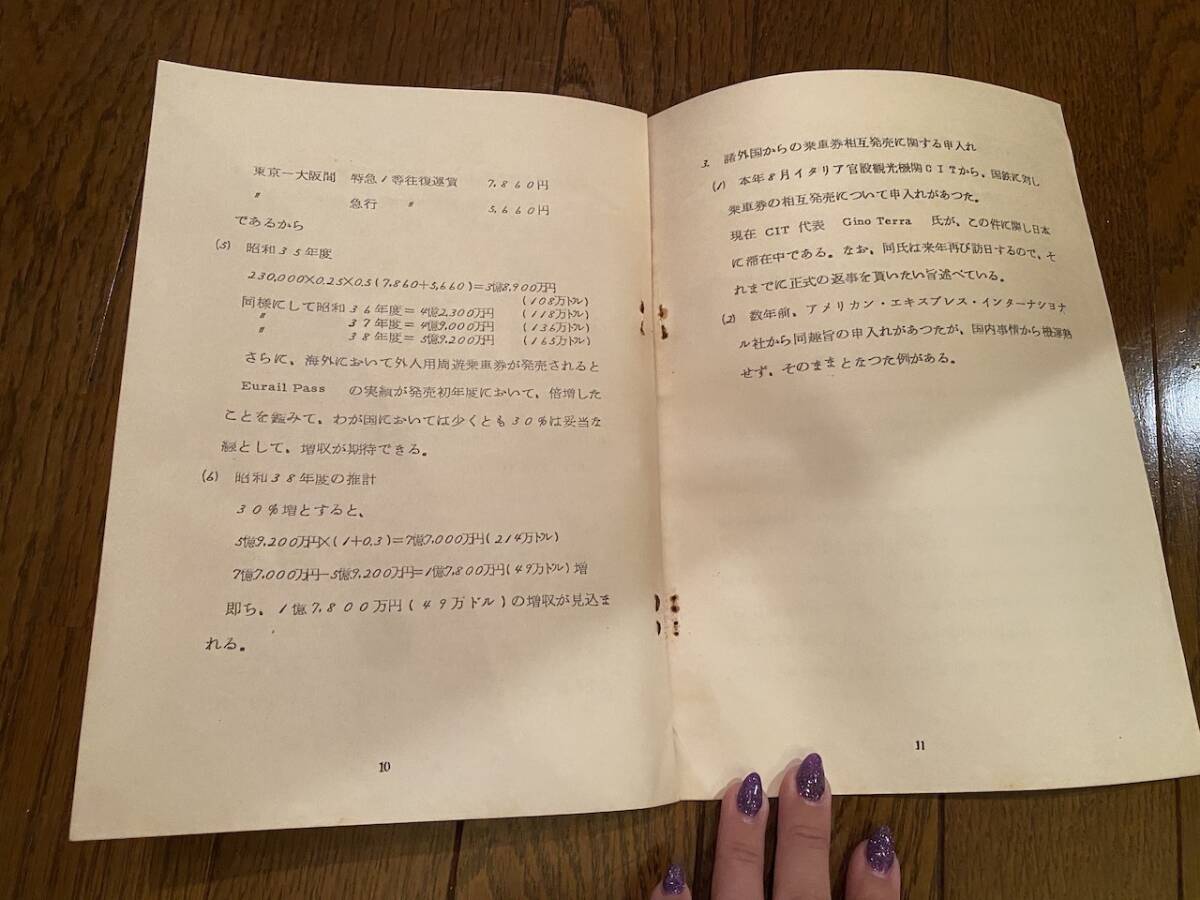 東京－大阪間 特急1等往復運賃 7,860円
〃 急行 〃 5,660円
であるから
(5) 昭和35年度
230,000×0.25×0.5(7,860+5,660)=3億8,900万円
(108万ドル)
同様にして昭和36年度=4億2,300万円 (118万ドル)
〃 37年度=4億9,000万円 (136万ドル)
〃 38年度=5億9,200万円 (165万ドル)
さらに、海外において外人用周遊乗車券が発売されると
Eurail Pass の実績が発売初年度において、倍増した
ことを鑑みて、わが国においては少くとも30%は妥当な
線として、増収が期待できる。
(6) 昭和38年度の推計
30%増とすると、
5億9,200万円×(1+0.3)=7億7,000万円(214万ドル)
7億7,000万円－5億9,200万円=1億7,800万円(49万ドル)増
即ち、1億7,800万円(49万ドル)の増収が見込ま
れる。
10
3. 諸外国からの乗車券相互発売に関する申入れ
(1) 本年8月イタリア官設観光機関CITから、国鉄に対し
乗車券の相互発売について申入れがあつた。
現在 CIT 代表 Gino Terra 氏が、この件に関し日本
に滞在中である。なお、同氏は来年再び訪日するので、そ
れまでに正式の返事を貰いたい旨述べている。
(2) 数年前、アメリカン・エキスプレス・インターナショナ
ル社から同趣旨の申入れがあつたが、国内事情から機運熟
せず、そのままとなつた例がある。
11